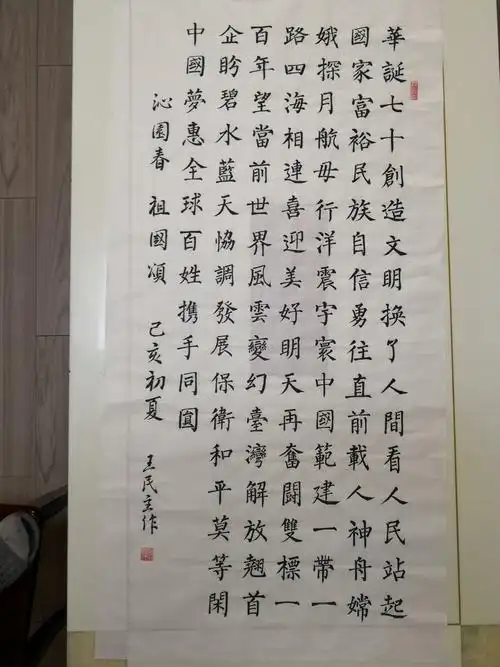 華誕七十創造文明換了人間看人民站起
國家富裕民族自信勇往直前載人神舟嫦
娥探月航母行洋震宇寰中國範建一帶一
路四海相連喜迎美好明天再奮鬪雙標一
百年望當前世界風雲變幻臺灣解放翹首
企盼碧水藍天恊調發展保衛和平莫等閑
中國夢惠全球百姓携手同圓
沁園春 祖國頌 己亥初夏 王民主作